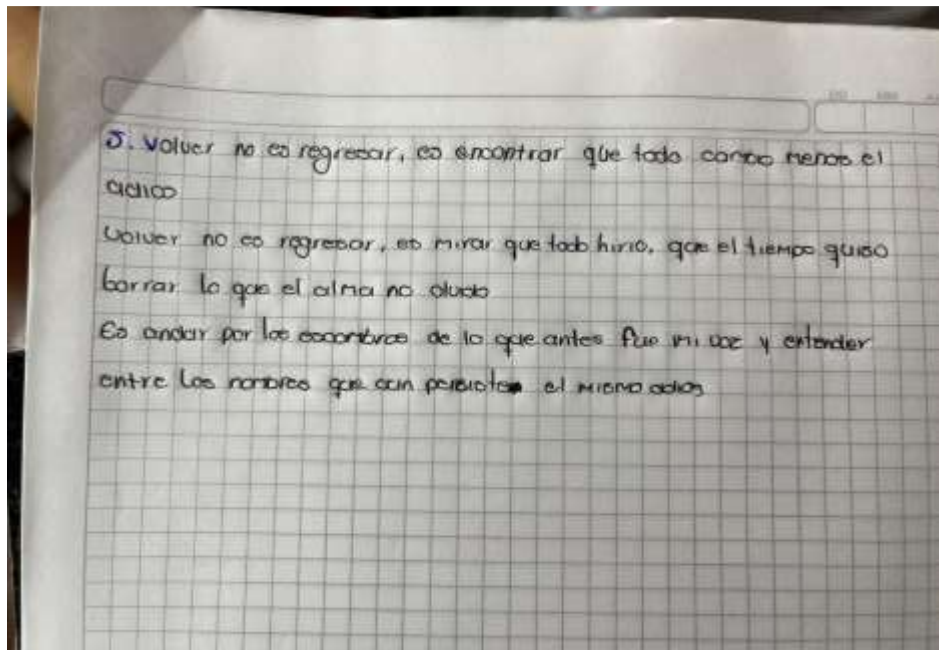 5. Volver no es regresar, es encontrar que todo cambio menos el
adios
Volver no es regresar, es mirar que todo hirio, que el tiempo quiso
borrar lo que el alma no olvido
Es andar por los escombros de lo que antes fue mi voz y entender
entre los nombres que aun persiste el mismo adios